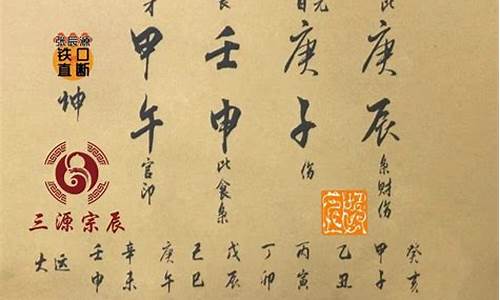 张辰源
铁口
直断
坤
才
甲午
官印
食
壬申
比食枭
日元
庚子
伤
比
庚辰
枭财伤
三源宗辰
大运
壬申
辛未
庚午
己巳
戊辰
丁卯
丙寅
乙丑
甲子
癸亥